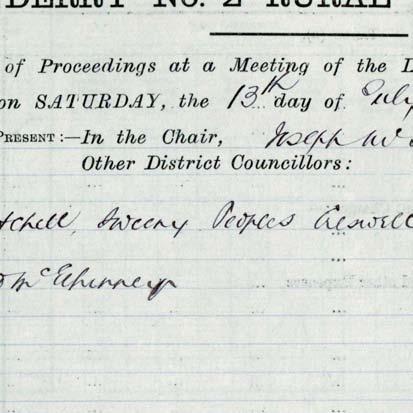 DERRY No. 2 RURAL
of Proceedings at a Meeting of the D
on SATURDAY, the 13th day of July
PRESENT:—In the Chair, Joseph W
Other District Councillors:
tchell, Sweeny Peoples
McElhinney